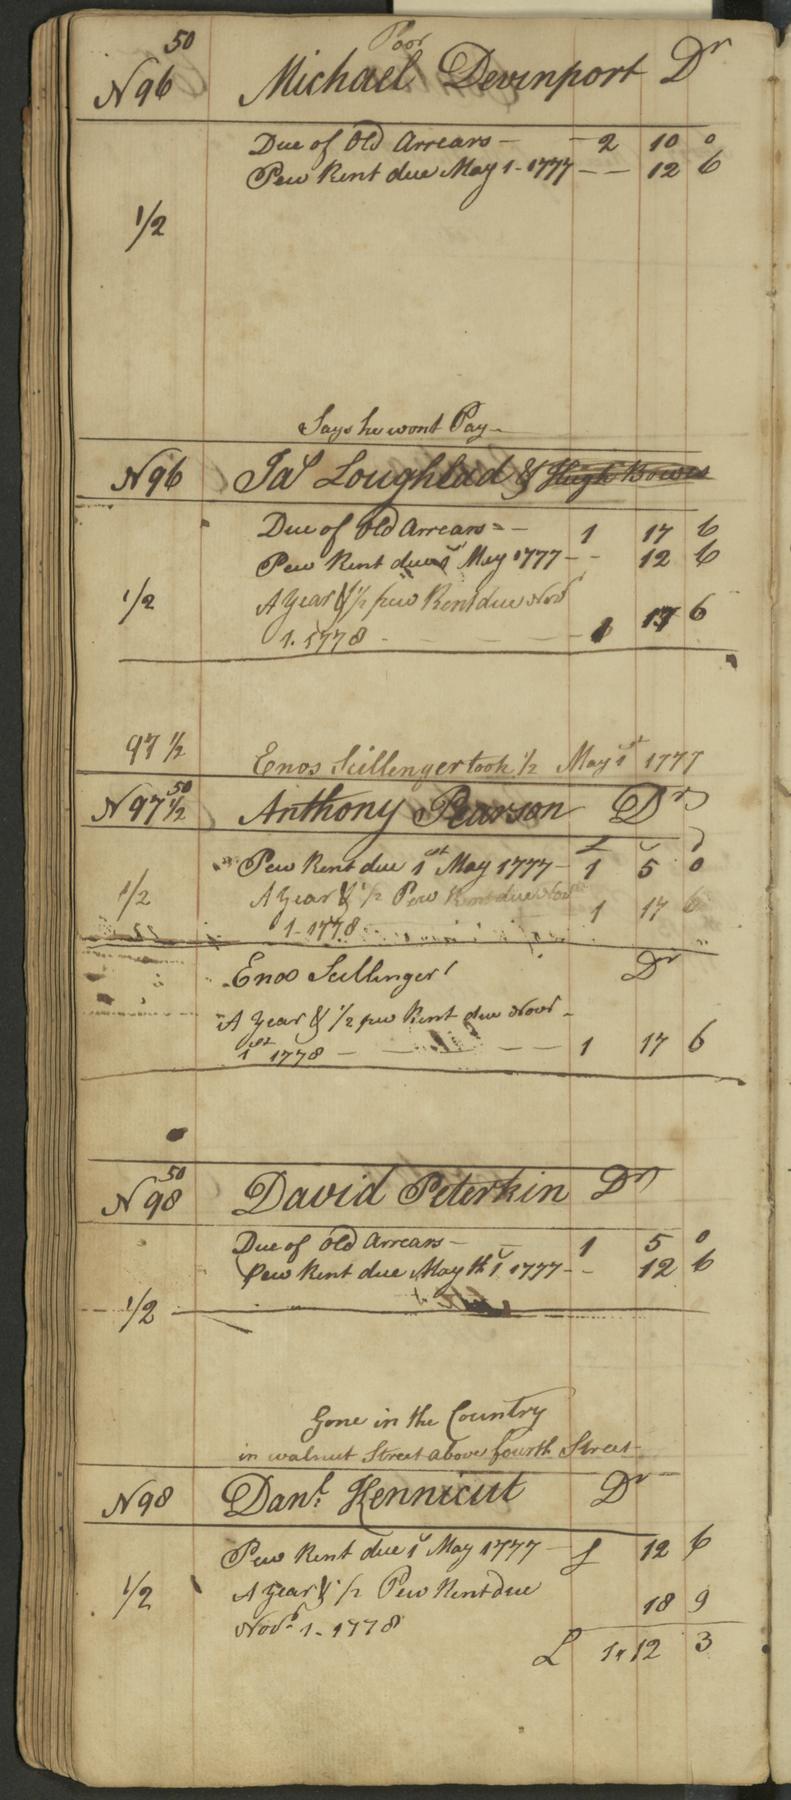 50
Poor
N 96 Michael Devinport Dr
Due of Old Arrears - - 2 10 0
Pew Rent due May 1 - 1777 - - 12 6
1/2
Says he wont Pay -
N 96 Jas Loughead & Hugh Bowes
Due of Old Arrears = - 1 17 6
Pew Rent due 1st May 1777 - - 12 6
1/2 A Year & 1/2 pew Rent due Novr
1. 1778 - - - - 1 17 6
97 1/2 Enos Scillenger took 1/2 May 1st 1777
50
N 97 1/2 Anthony Pearson Dr
Pew Rent due 1st May 1777 - 1 5 0
1/2 A Year & 1/2 Pew Rent due Novr
1 - 1778 - 1 17 6
Enos Scillinger Dr
A Year & 1/2 pew Rent due Novr -
1st 1778 - - - - 1 17 6
50
N 98 David Peterkin Dr
Due of Old Arrears - - 1 5 0
Pew Rent due May th 1 1777 - - 12 6
1/2
Gone in the Country
in walnut Street above fourth Street
N 98 Danl: Kennicut Dr
Pew Rent due 1st May 1777 - £ 12 6
1/2 A Year & 1/2 Pew Rent due
18 9
Novr 1 - 1778
£ 1 " 12 3